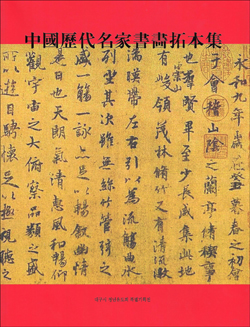 中國歷代名家書畵拓本集
永和九年歲在癸丑暮春之初會
于會稽山陰之蘭亭脩稧事
也羣賢畢至少長咸集此地
有崇山峻領茂林脩竹又有清流激
湍暎帶左右引以為流觴曲水
列坐其次雖無絲竹管弦之
盛一觴一詠亦足以暢敘幽情
是日也天朗氣清惠風和暢仰
觀宇宙之大俯察品類之盛
所以遊目騁懷足以極視聽之